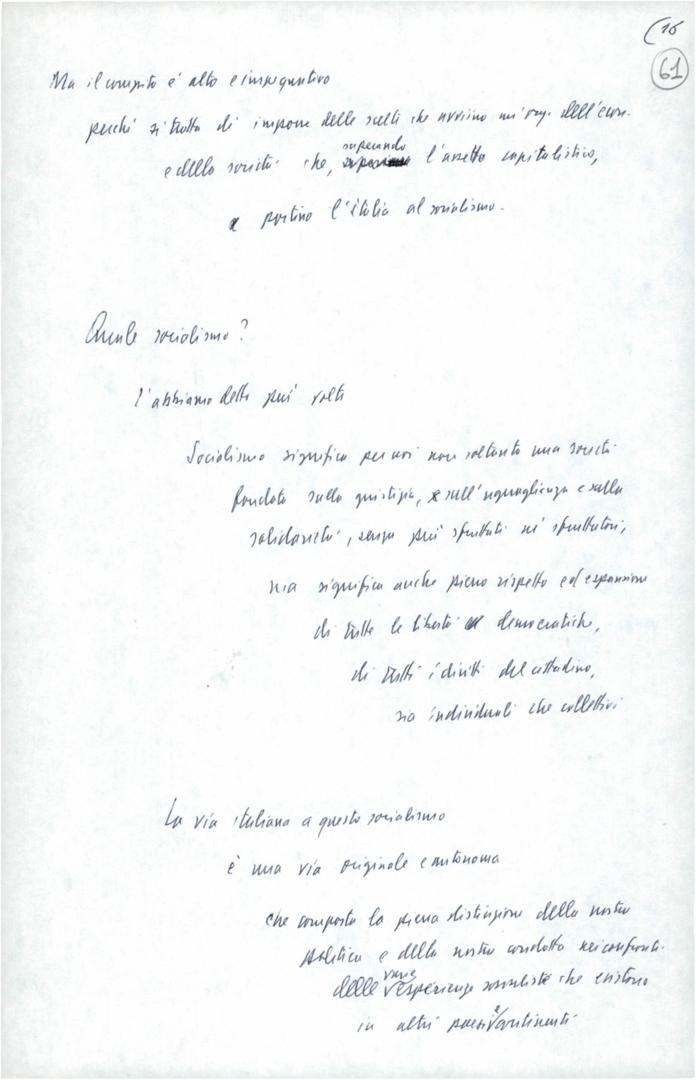 (16
61
Ma il compito è alto e impegnativo
perché si tratta di imporre delle scelte che avviino un'org. dell'econ.
e della società che, superando l'assetto capitalistico,
portino l'Italia al socialismo.
Quale socialismo?
l'abbiamo detto più volte
Socialismo significa per noi non soltanto una società
fondata sulla giustizia, sull'uguaglianza e sulla
solidarietà, senza più sfruttati né sfruttatori,
ma significa anche pieno rispetto ed espansione
di tutte le libertà democratiche,
di tutti i diritti del cittadino,
sia individuali che collettivi
La via italiana a questo socialismo
è una via originale e autonoma
che comporta la piena distinzione della nostra
politica e della nostra condotta nei confronti
delle varie esperienze socialiste che esistono
in altri paesi e continenti